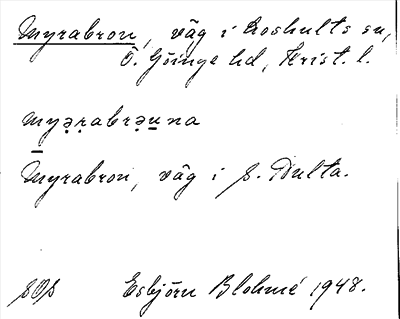 Myrabron, väg i Loshults sn,
Ö. Göinge hd, Krist. l.
myạṛabrạu̲na
Myrabron, väg i s. Dulta.
sOs Esbjörn Blohmé 1948.